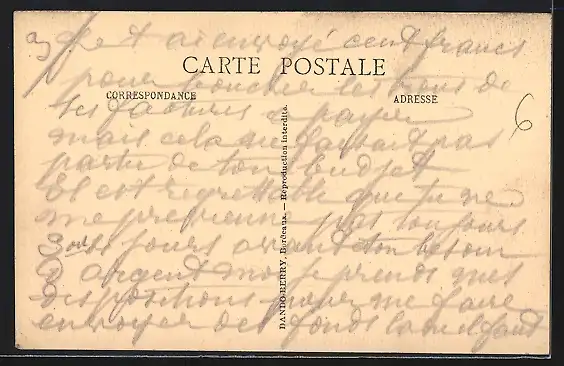 je t ai envoyé cent francs
CARTE POSTALE
pour boucher les trous de
CORRESPONDANCE ADRESSE
tes factures à payer
6
mais cela ne faisait pas
partie de ton budget
Il est regrettable que tu ne
me previenne pas toujours
3 ou 4 jours avant ton besoin
d argent moi je prends mes
dispositions pour me faire
envoyer des fonds là où il faut
DANDO-BERRY, Bordeaux. — Reproduction interdite.